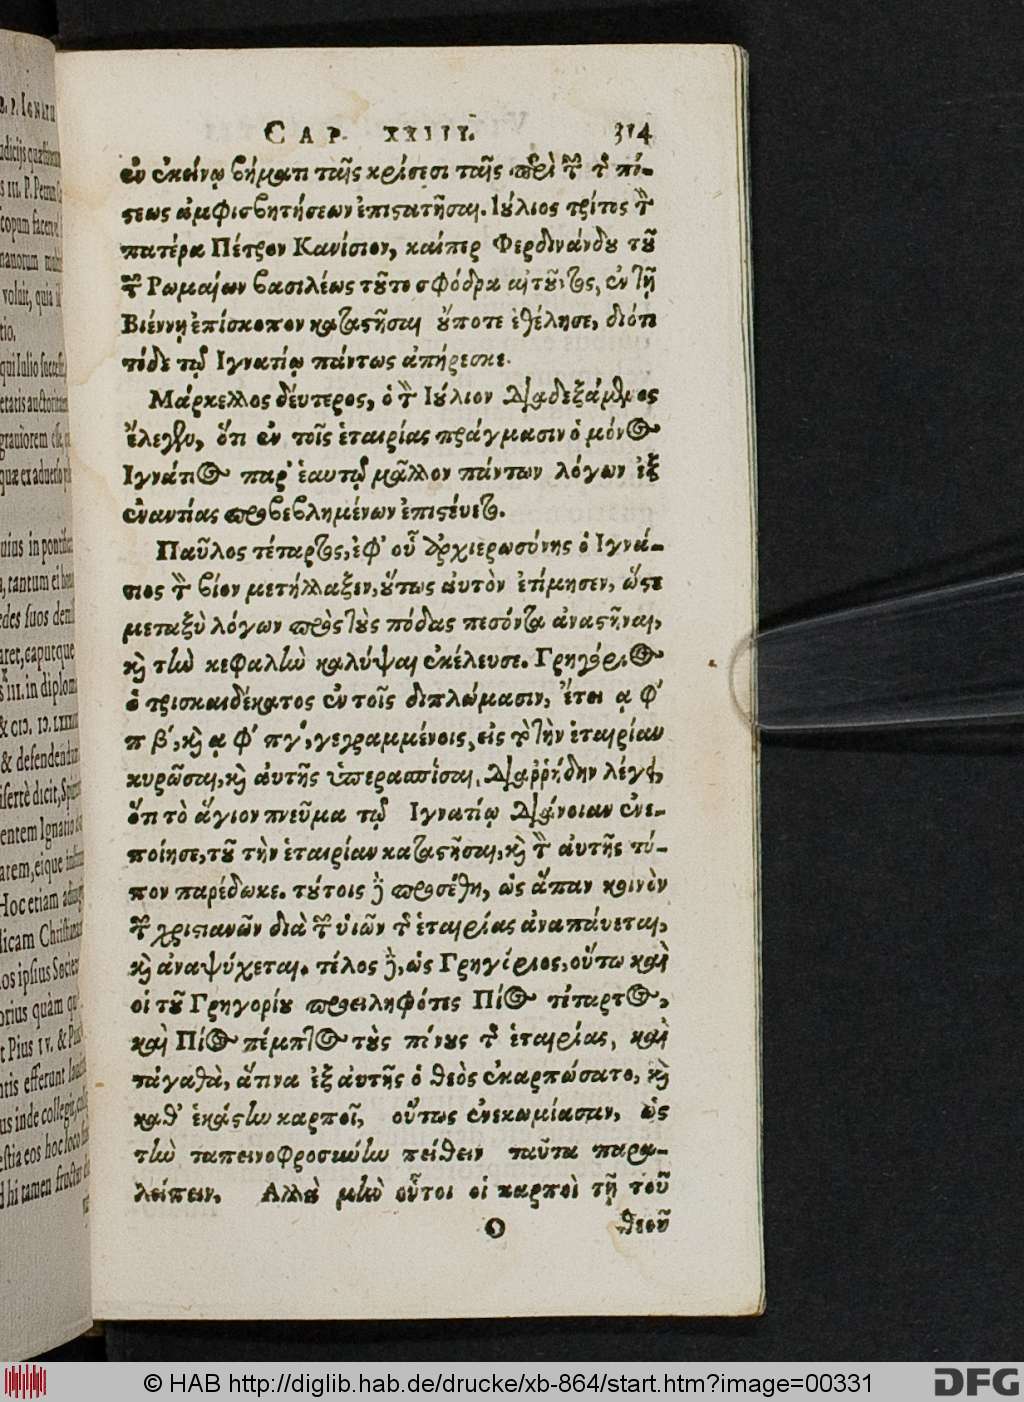 CAP. XXIII. 314
ἐν ἐκείνῳ βήματι ταῖς κρίσεσι ταῖς περὶ τῶν τῆς πί-
στεως ἀμφισβητήσεων ἐπιστατῆσαι. Ιούλιος τρίτος τὸν
πατέρα Πέτρον Κανίσιον, καίπερ Φερδινάνδου τοῦ
τῶν Ρωμαίων βασιλέως τοῦτο σφόδρα αἰτοῦντος, ἐν τῇ
Βιέννῃ ἐπίσκοπον καταστῆσαι οὔποτε ἐθέλησε, διότι
τόδε τῷ Ιγνατίῳ πάντως ἀπήρεσκε.
Μάρκελλος δεύτερος, ὁ τὸν Ιούλιον διαδεξάμενος
ἔλεγεν, ὅτι ἐν τοῖς ἑταιρίας πράγμασιν ὁ μόνος
Ιγνάτιος παρ' ἑαυτῷ μᾶλλον πάντων λόγων ἐξ
ἐναντίας προβεβλημένων ἐπιστεύετο.
Παῦλος τέταρτος, ἐφ' οὗ ἀρχιερωσύνης ὁ Ιγνά-
τιος τὸν βίον μετήλλαξεν, οὕτως αὐτὸν ἐτίμησεν, ὥστε
μεταξὺ λόγων πρὸς τοὺς πόδας πεσόντα ἀναστῆναι,
καὶ τὴν κεφαλὴν καλύψαι ἐκέλευσε. Γρηγόριος
ὁ τρισκαιδέκατος ἐν τοῖς διπλώμασιν, ἔτει α φ'
π β', καὶ α φ' πγ', γεγραμμένοις, εἰς τὸ τὴν ἑταιρίαν
κυρῶσαι, καὶ αὐτῆς ὑπερασπίσαι, διαῤῥήδην λέγει,
ὅτι τὸ ἅγιον πνεῦμα τῷ Ιγνατίῳ διάνοιαν ἐνε-
ποίησε, τοῦ τὴν ἑταιρίαν καταστῆσαι, καὶ τὸν αὐτῆς τύ-
πον παρέδωκε. τούτοις δὲ προσέθη, ὡς ἅπαν κοινὸν
τῶν χριστιανῶν διὰ τῶν υἱῶν τῆς ἑταιρίας ἀναπαύεται,
καὶ ἀναψύχεται. τέλος δὲ, ὡς Γρηγόριος, οὕτω καὶ
οἱ τοῦ Γρηγορίου προειληφότες Πίος τέταρτος,
καὶ Πίος πέμπτος τοὺς πόνους τῆς ἑταιρίας, καὶ
τἀγαθὰ, ἅτινα ἐξ αὐτῆς ὁ θεὸς ἐκαρπώσατο, καὶ
καθ' ἑκάστην καρποῖ, οὕτως ἐνεκωμίασαν, ὡς
τὴν ταπεινοφροσύνην πείθειν ταῦτα παρα-
λείπειν. Αλλὰ μὴν οὗτοι οἱ καρποὶ τῇ τοῦ
O θεοῦ
© HAB http://diglib.hab.de/drucke/xb-864/start.htm?image=00331
DFG